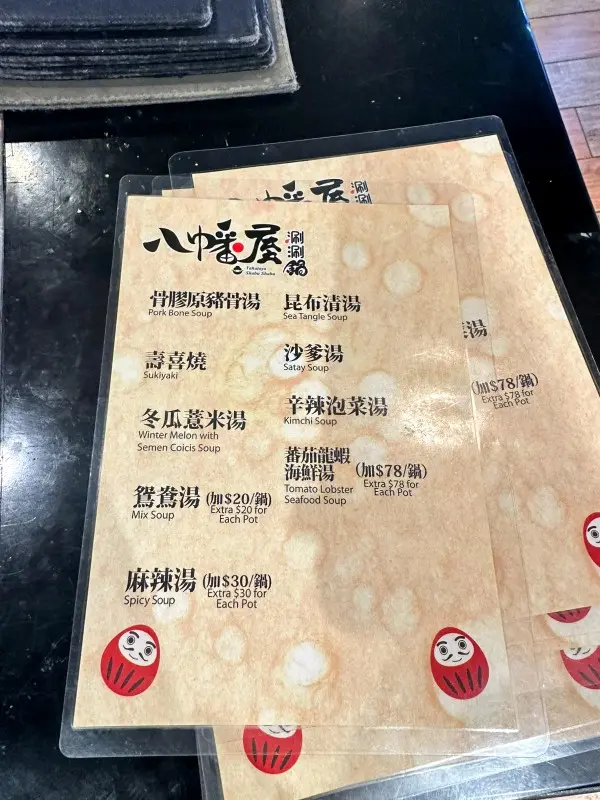 八幡屋
涮涮鍋
Yahataya
Shabu Shabu
骨膠原豬骨湯
Pork Bone Soup
昆布清湯
Sea Tangle Soup
壽喜燒
Sukiyaki
沙爹湯
Satay Soup
冬瓜薏米湯
Winter Melon with
Semen Coicis Soup
辛辣泡菜湯
Kimchi Soup
鴛鴦湯 (加$20/鍋)
Mix Soup
Extra $20 for
Each Pot
蕃茄龍蝦
海鮮湯 (加$78/鍋)
Tomato Lobster
Seafood Soup
Extra $78 for
Each Pot
麻辣湯 (加$30/鍋)
Spicy Soup
Extra $30 for
Each Pot
湯
(加$78/鍋)
Extra $78 for
Each Pot